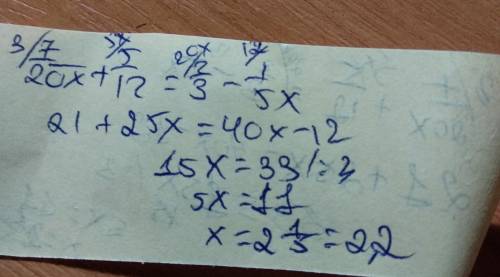 3/ 7/20x + 5x/ 5/12 = 20x/ 2/3 - 12/ 1/5x
21 + 25x = 40x - 12
15x = 33 | : 3
5x = 11
x = 2 1/5 = 2,2